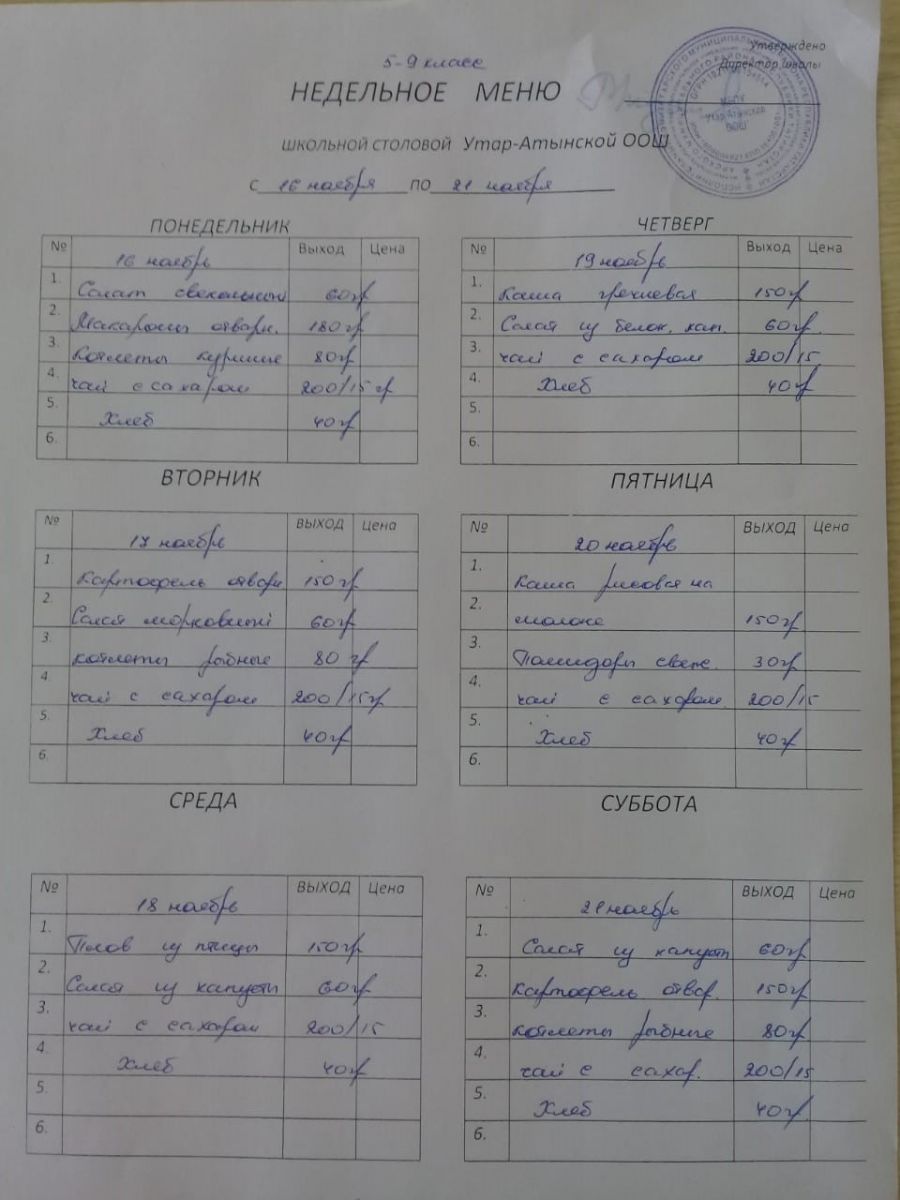 5-9 класс
Утверждено
Директор школы
НЕДЕЛЬНОЕ МЕНЮ
ШКОЛЬНОЙ СТОЛОВОЙ Утар-Атынской ООШ
С 16 ноября ПО 21 ноября
ПОНЕДЕЛЬНИК
№ 16 ноябрь Выход Цена
1. Салат свекольный 60гр
2. Макароны отварн. 180гр
3. Котлеты куриные 80гр
4. чай с сахаром 200/15 гр
5. Хлеб 40гр
6.
ВТОРНИК
№ 17 ноябрь ВЫХОД Цена
1. Картофель отварн 150гр
2. Салат морковный 60гр
3. котлеты рыбные 80 гр
4. чай с сахаром 200/15гр
5. Хлеб 40гр
6.
СРЕДА
№ 18 ноябрь ВЫХОД Цена
1. Плов из птицы 150гр
2. Салат из капусты 60гр
3. чай с сахаром 200/15
4. Хлеб 40гр
5.
6.
ЧЕТВЕРГ
№ 19 ноябрь Выход Цена
1. Каша гречневая 150гр
2. Салат из белок. кап. 60гр
3. чай с сахаром 200/15
4. Хлеб 40гр
5.
6.
ПЯТНИЦА
№ 20 ноябрь ВЫХОД Цена
1. Каша рисовая на
2. молоке 150гр
3. Помидоры свеж. 30гр
4. чай с сахаром 200/15
5. Хлеб 40гр
6.
СУББОТА
№ 21 ноябрь ВЫХОД Цена
1. Салат из капусты 60гр
2. Картофель отвар. 150гр
3. котлеты рыбные 80гр
4. чай с сахар. 200/15
5. Хлеб 40гр
6.